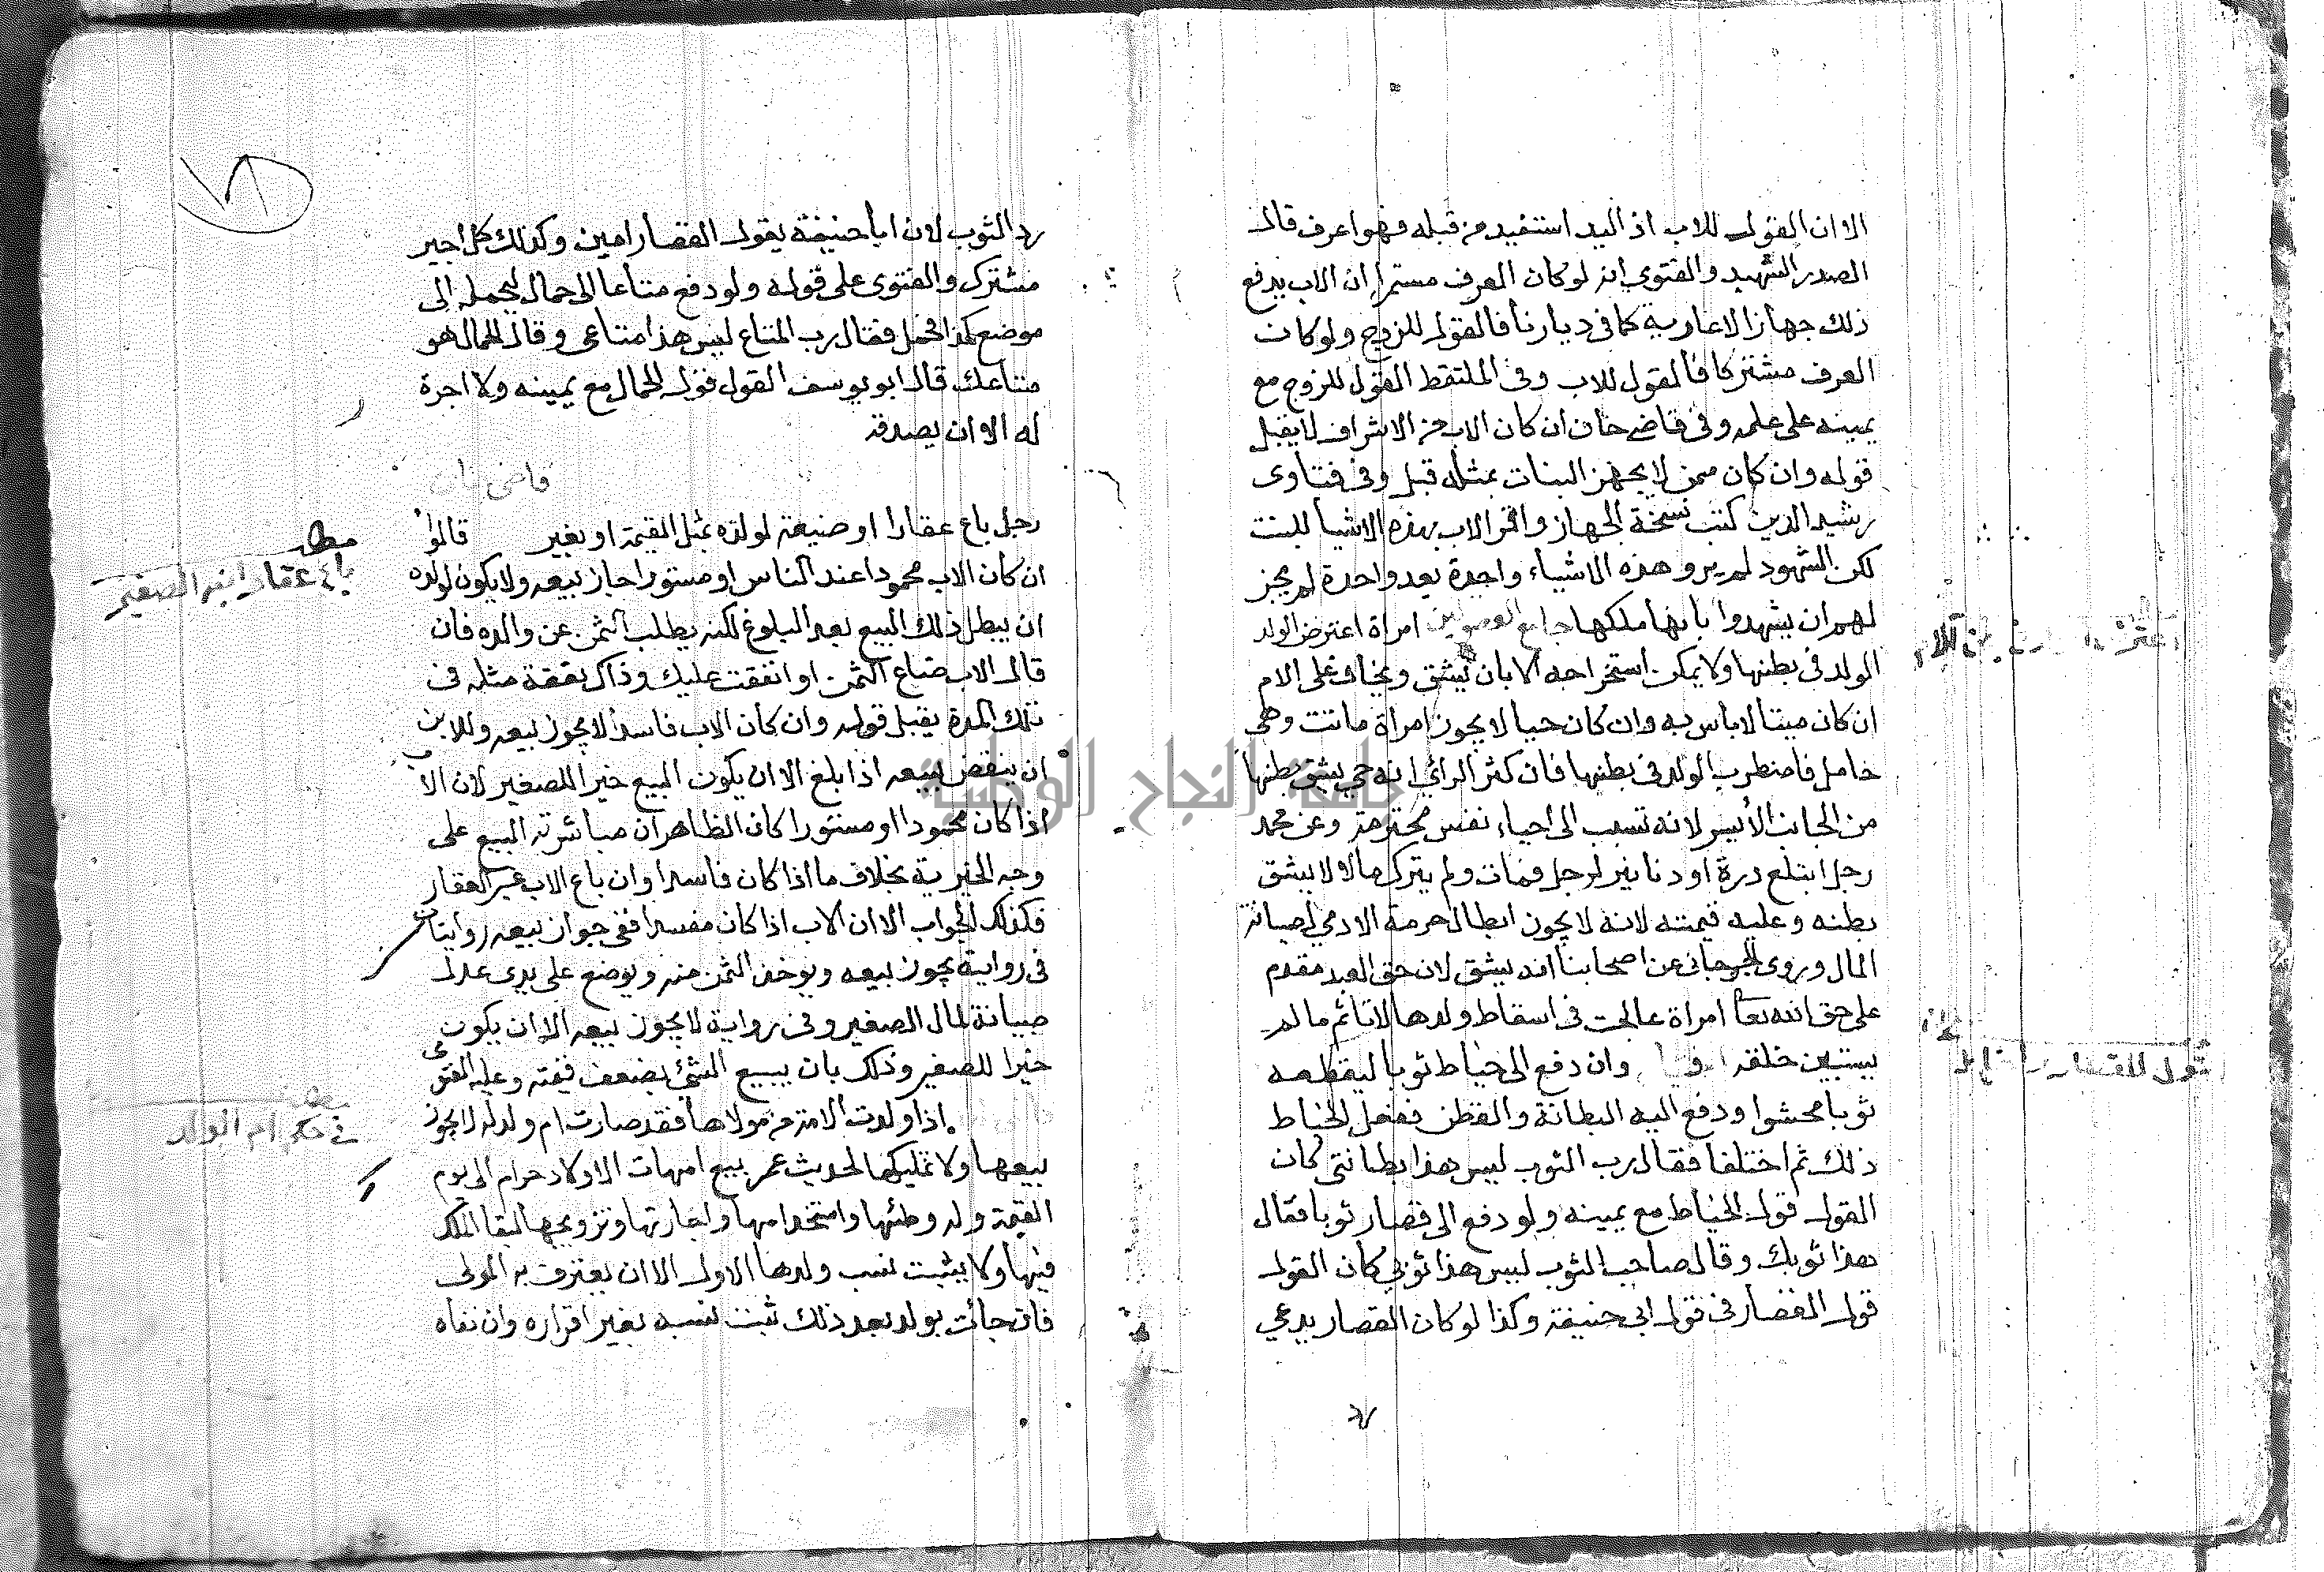 الا ان القول للاب اذ اليد استفيد من قبله فهو اعرف قال
الصدر الشهيد والفتوى انه لو كان العرف مستمرا ان الاب يدفع
ذلك جهازا لاعارية كما فى ديارنا فالقول للزوج ولو كان
العرف مشتركا فالقول للاب وفى الملتقط القول للزوج مع
يمينه على علمه وفى قاضى خان ان كان الاب من الاشراف لا يقبل
قوله وان كان ممن لا يجهز البنات بمثله قبل وفى فتاوى
رشيد الدين كتب نسخة الجهاز واقر الاب بهذه الاشيا للبنت
لكن الشهود لم يرو هذه الاشياء واحدة بعد واحدة لم يجز
لهم ان يشهدوا بانها ملكها جامع الفصولين امراة اعترض الولد
الولد فى بطنها ولا يمكن استخراجه الا بان يشق ويخاف على الام
ان كان ميتا لاباس به وان كان حيا لا يجوز امراة ماتت وهى
حامل فاضطرب الولد فى بطنها فان كثر الراي انه حي يشق بطنها
من الجانب الأيسر لانه تسبب الى احياء نفس محترمة وعن محمد
رجل ابتلع درة او دنانير لرجل فمات ولم يترك مالا لا يشق
بطنه وعليه قيمته لانه لا يجوز ابطال حرمة الادمي لصيانة
المال وروى الجرجانى عن اصحابنا انه يشق لان حق العبد مقدم
على حق الله تعا امراة عالجت فى اسقاط ولدها لا تاثم ما لم
يستبين خلقه وان دفع الى خياط ثوبا ليقطعه
ثوبا محشوا ودفع اليه البطانة والقطن ففعل الخياط
ذلك ثم اختلفا فقال رب الثوب ليس هذا بطانتى كان
القول قول الخياط مع يمينه ولو دفع الى قصار ثوبا فقال
هذا ثوبك وقال صاحب الثوب ليس هذا ثوبي كان القول
قول القصار فى قول ابى حنيفة وكذا لو كان القصار يدعي
رد الثوب لان ابا حنيفة يقول القصار امين وكذلك كل اجير
مشترك والفتوى على قوله ولو دفع متاعا الى حمال ليحمله الى
موضع كذا فحمل فقال رب المتاع ليس هذا متاعى وقال الحمال هو
متاعك قال ابو يوسف القول قول الحمال مع يمينه ولا اجرة
له الا ان يصدقه
قاضى خان
رجل باع عقارا او ضيعة لولده بمثل القيمة او بغير قالوا
ان كان الاب محمودا عند الناس او مستورا جاز بيعه ولا يكون لولده
ان يبطل ذلك البيع بعد البلوغ لكنه يطلب الثمن عن والده فان
قال الاب ضاع الثمن او انفقت عليك وذاك نفقة مثله فى
تلك المدة يقبل قوله وان كان الاب فاسدا لا يجوز بيعه وللابن
ان ينقض بيعه اذا بلغ الا ان يكون البيع خيرا للصغير لان الاب
اذا كان محمودا او مستورا كان الظاهر ان مباشرته البيع على
وجه الخيرية بخلاف ما اذا كان فاسدا وان باع الاب غير العقار
فكذلك الجواب الا ان الاب اذا كان مفسدا ففى جواز بيعه روايتان
فى رواية يجوز بيعه ويوخذ الثمن منه ويوضع على يدى عدل
صيانة لمال الصغير وفى رواية لا يجوز بيعه الا ان يكون
خيرا للصغير وذلك بان يبيع الشئ بضعف قيمته وعليه الفتوى
اذا ولدت الامة من مولاها فقد صارت ام ولد له لا يجوز
بيعها ولا تمليكها لحديث عمر بيع امهات الاولاد حرام الى يوم
القيمة وله وطئها واستخدامها واجارتها وتزويجها لبقا الملك
فيها ولا يثبت نسب ولدها الاول الا ان يعترف به المولى
فان جائت بولد بعد ذلك ثبت نسبه بغير اقراره وان نفاه
مطلب
باع عقار ابنه الصغير
مطلب
فى حكم ام الولد
جامعة النجاح الوطنية